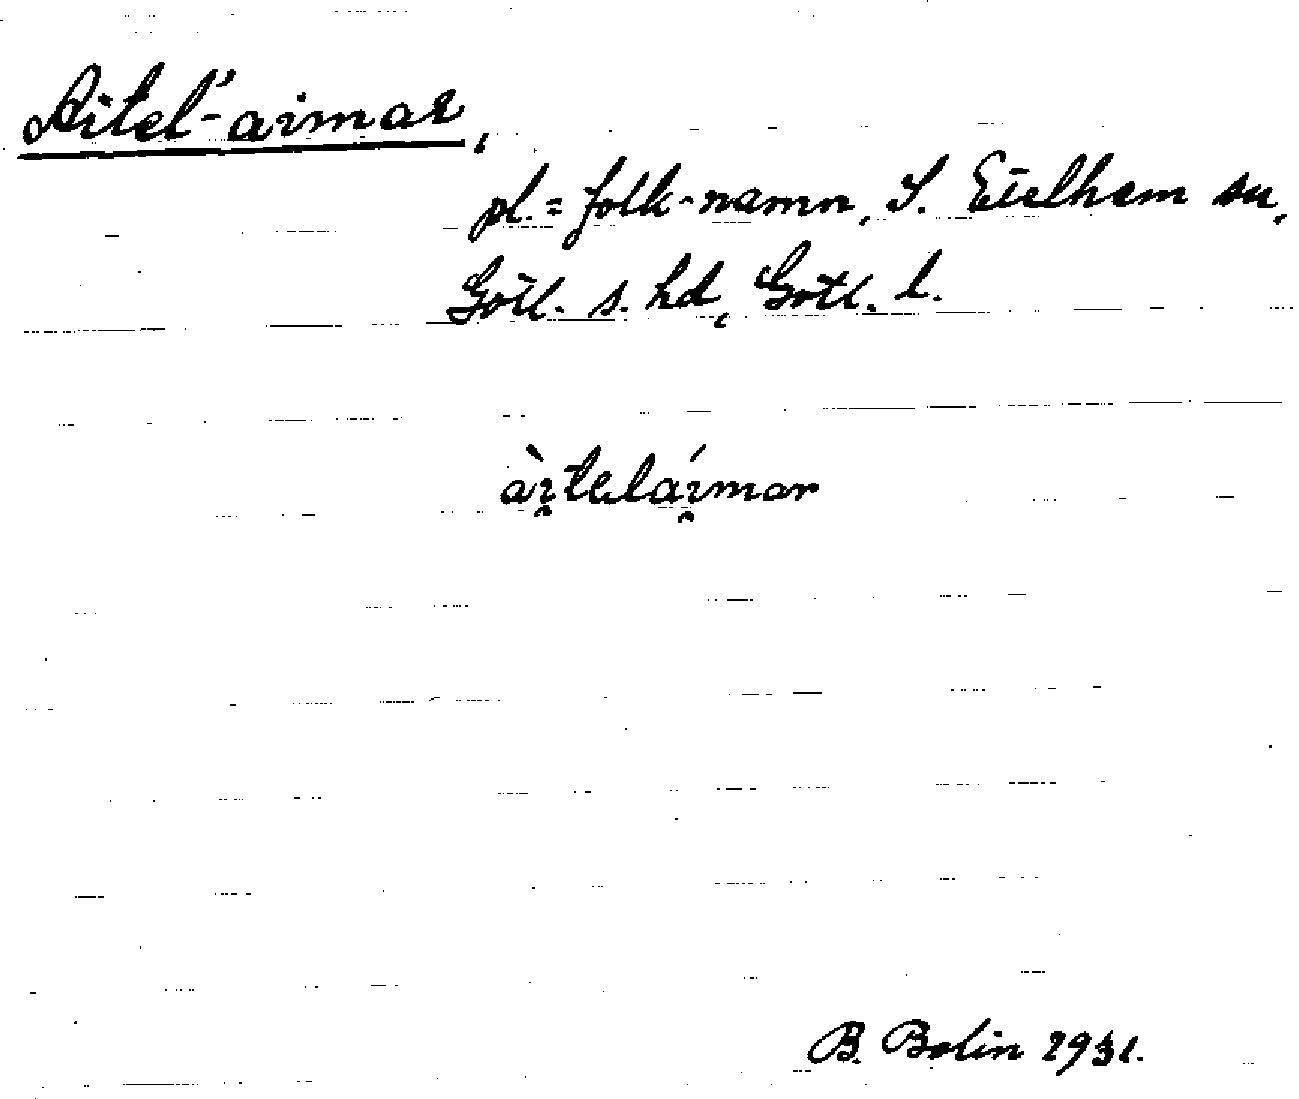 Aitel'-aimar,
pl. = folk-namn, S. Etelhem sn,
Gotl. s. hd, Gotl. l.
àı̯teláı̯mar
B. Bolin 1931.